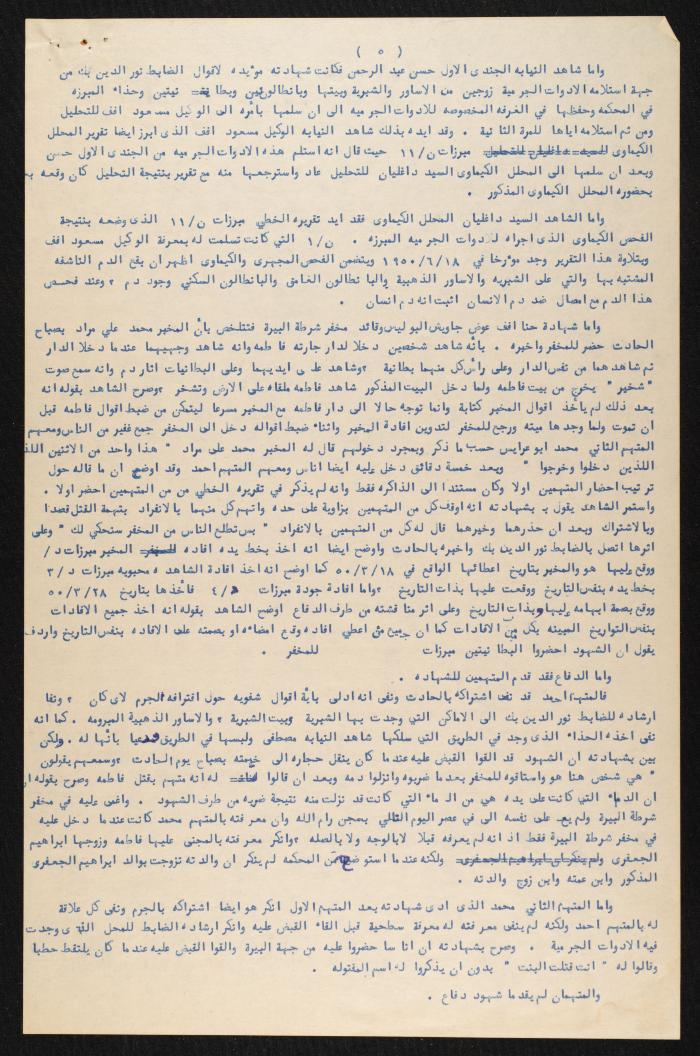 ( ٥ )
واما شاهد النيابه الجندى الاول حسن عبد الرحمن فكانت شهادته موءيده لاقوال الضابط نور الدين بك من
جهة استلامه الادوات الجرمية زوجين من الاساور والشبرية وبيتها وبانطالونين وبطا نيتين وحذاء المبرزه
في المحكمه وحفظها في الغرفه المخصوصه للادوات الجرميه الى ان سلمها بأمره الى الوكيل مسعود افف للتحليل
ومن ثم استلامه اياها للمرة الثانية . وقد ايده بذلك شاهد النيابه الوكيل مسعود افف الذى ابرز ايضا تقرير المحلل
الكيماوى السيد داغليان للتحليل مبرزات ن/١١ حيث قال انه استلم هذه الادوات الجرميه من الجندى الاول حسن
وبعد ان سلمها الى المحلل الكيماوى السيد داغليان للتحليل عاد واسترجعها منه مع تقرير بنتيجة التحليل كان وقعه
بحضوره المحلل الكيماوى المذكور .
واما الشاهد السيد داغليان المحلل الكيماوى فقد ايد تقريره الخطي مبرزات ن/١١ الذى وضعه بنتيجة
الفحص الكيماوى الذى اجراه للادوات الجرميه المبرزه . ن/١ التي كانت تسلمت له بمعرفة الوكيل مسعود افف
وبتلاوة هذا التقرير وجد موءرخا في ١٩٥٠/٦/١٨ ويتضمن الفحص المجهرى والكيماوى اظهر ان بقع الدم الناشفه
المشتبه بها والتي على الشبريه والاساور الذهبية والبانطالون الغامق والبانطالون السكني وجود دم ؟ وعند فحص
هذا الدم مع امصال ضد دم الانسان اثبت انه دم انسان .
واما شهادة حنا افف عوض جاويش البوليس وقائد مخفر شرطة البيرة فتتلخص بأن المخبر محمد علي مراد بصباح
الحادث حضر للمخفر واخبره . بأنه شاهد شخصين دخلا لدار جارته فاطمه وانه شاهد وجهيهما عندما دخلا الدار
ثم شاهدهما من نفس الدار وعلى رأس كل منهما بطانية ؟ وشاهد على ايديهما وعلى البطانيات اثار دم وانه سمع صوت
" شخير " يخرج من بيت فاطمه ولما دخل البيت المذكور شاهد فاطمه ملقاه على الارض وتشخر ؟ وصرح الشاهد بقوله انه
بعد ذلك لم يأخذ اقوال المخبر كتابة وانما توجه حالا الى دار فاطمه مع المخبر مسرعا ليتمكن من ضبط اقوال فاطمه قبل
ان تموت ولما وجدها ميته ورجع للمخفر لتدوين افادة المخبر واثناء ضبط اقواله دخل الى المخفر جمع غفير من الناس ومعهم
المتهم الثاني محمد ابو عرايس حسب ما ذكر وبمجرد دخولهم قال له المخبر محمد على مراد " هذا واحد من الاثنين
اللذين دخلوا وخرجوا " وبعد خمسة دقائق دخل عليه ايضا اناس ومعهم المتهم احمد وقد اوضح ان ما قاله حول
ترتيب احضار المتهمين اولا وكان مستندا الى الذاكره فقط وانه لم يذكر في تقريره الخطي من من المتهمين احضر اولا .
واستمر الشاهد يقول بـ بشهادته انه اوقف كل من المتهمين بزاوية على حده واتهم كل منهما بالانفراد بتهمة القتل قصدا
وبالاشتراك وبعد ان حذرهما وخيرهما قال له كل من المتهمين بالانفراد " بس تطلع الناس من المخفر سنحكي لك " وعلى
اثرها اتصل بالضابط نور الدين بك واخبره بالحادث واوضح ايضا انه اخذ بخط يده افاده المخبر مبرزات د/
ووقع عليها هو والمخبر بتاريخ اعطائها الواقع في ٥٠/٣/١٨ كما اوضح انه اخذ افادة الشاهده محبوبه مبرزات د/٣
بخط يده بنفس التاريخ ووقعت عليها بذات التاريخ ؟ واما افادة جودة مبرزات د/٤ فأخذها بتاريخ ٥٠/٣/٢٨
ووقع بصمة ابهامه عليها وبذات التاريخ وعلى اثر مناقشته من طرف الدفاع اوضح الشاهد بقوله انه اخذ جميع الافادات
بنفس التواريخ المبينه بكل من الافادات كما ان جميع من اعطي افاده وقع امضاءه او بصمته على الافاده بنفس التاريخ واردف
يقول ان الشهود احضروا البطانيتين مبرزات للمخفر .
واما الدفاع فقد قدم المتهمين للشهاده .
فالمتهم احمد قد نفى اشتراكه بالحادث ونفى انه ادلى بأية اقوال شفويه حول اقترافه الجرم لاى كان ؟ ونفا
ارشاده للضابط نور الدين بك الى الاماكن التي وجدت بها الشبرية وبيت الشبرية ؟ والاساور الذهبية المبرومه . كما انه
نفى اخذه الحذاء الذى وجد في الطريق التي سلكها شاهد النيابه مصطفى ولبسها في الطريق بأنها له . ولكن
بين بشهادته ان الشهود قد القوا القبض عليه عندما كان ينقل حجاره الى خيمته بصباح يوم الحادث ؟ وسمعهم يقولون
" هي شخص هنا هو واستاقوه للمخفر بعد ما ضربوه وانزلوا دمه وبعد ان قالوا له انه متهم بقتل فاطمه وصرح بقوله
ان الدماء التي كانت على يده هي من الدماء التي كانت قد نزلت منه نتيجة ضربه من طرف الشهود . واغمى عليه في مخفر
شرطة البيرة ولم يعد على نفسه الى في عصر اليوم التالي بسجن رام الله وان معرفته بالمتهم محمد كانت عندما دخل عليه
في مخفر شرطة البيرة فقط اذ انه لم يعرفه قبلا لا بالوجه ولا بالصله ؟ وانكر معرفته بالمجنى عليها فاطمه وزوجها ابراهيم
الجعفرى ولم ينكر ان ابراهيم الجعفرى ولكنه عندما استوضح من المحكمه لم ينكر ان والدته تزوجت بوالد ابراهيم الجعفرى
المذكور وابن عمته وابن زوج والدته .
واما المتهم الثاني محمد الذى ادى شهادته بعد المتهم الاول انكر هو ايضا اشتراكه بالجرم ونفى كل علاقة
له بالمتهم احمد ولكنه لم ينفى معرفته له معرفة سطحية قبل القاء القبض عليه وانكر ارشاده الضابط للمحل الذى وجدت
فيه الادوات الجرمية . وصرح بشهادته ان اناسا حضروا عليه من جهة البيرة والقوا القبض عليه عندما كان يلتقط حطبا
وقالوا له " انت قتلت البنت " بدون ان يذكروا له اسم المقتوله .
والمتهمان لم يقدما شهود دفاع .